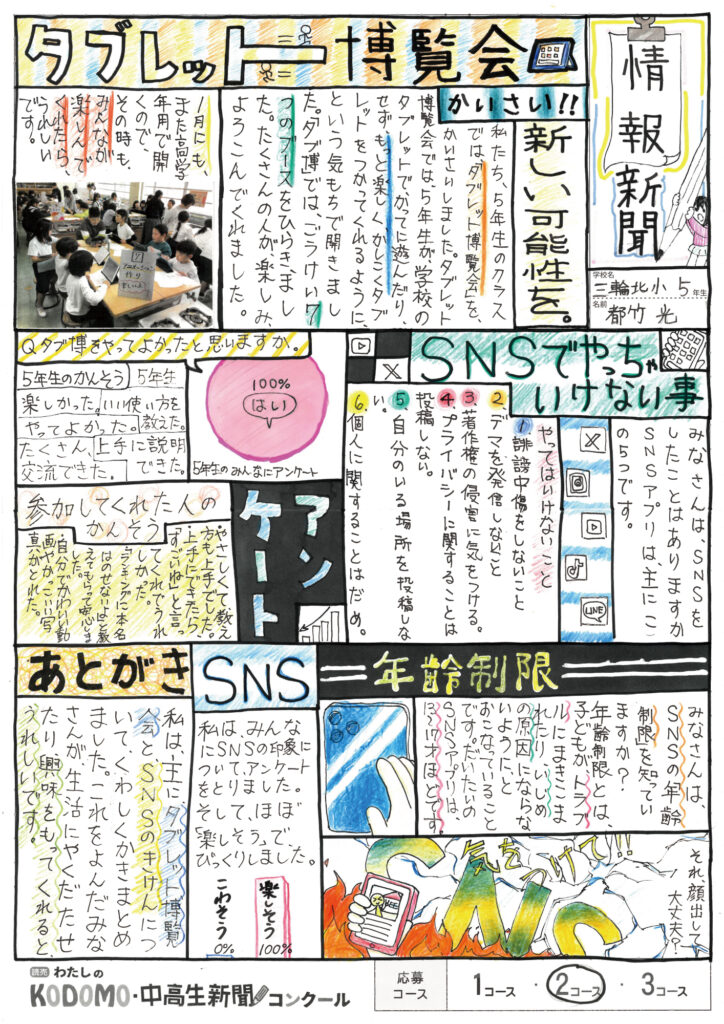 情報新聞
学校名 三輪北小 5年生
名前 都竹 光
タブレット博覧会
かいさい!!
新しい可能性を。
私たち、5年生のクラス
では、「タブレット博覧会」を、
かいさいしました。タブレット
博覧会では、5年生が学校の
タブレットで、かってに遊んだり、
せず、もっと楽しく、かしこくタブ
レットをつかってくれるように、
という気もちで開きまし
た。「タブ博」では、ごうけい7
つのブースをひらきまし
た。たくさんの人が、楽しみ、
よろこんでくれました。
1月にも、
また高学
年用で開
くので、
その時も、
みんなが
楽しんで
くれたら、
うれしい
です。
SNSでやっちゃ
いけない事
みなさんは、SNSを
したことはありますか
SNSアプリは、主にこ
の5つです。
LINE
やってはいけないこと
1 誹謗中傷をしないこと
2 デマを発信しないこと
3 著作権の侵害に気をつける。
4 プライバシーに関することは
投稿しない。
5 自分のいる場所を投稿しな
い。
6 個人に関することはだめ。
Qタブ博をやってよかったと思いますか。
100%
はい
5年生のみんなにアンケート
5年生のかんそう
5年生
楽しかった。
いい使い方を
教えた。
やってよかった。
たくさん
交流できた。
上手に説明
できた。
アンケート
参加してくれた人の
かんそう
やさしくて教え
方も上手でした。
上手にできたら、
「すごいね」と言っ
てくれてうれ
しかった。
ランキングに本名
はのせないよと教
えてもらって安心しま
した。
自分でかわいい動
画や、かっこいい写
真がとれた。
年齢制限
みなさんは、
SNSの年齢
制限を知ってい
ますか?
年齢制限とは、
子どもが、トラブ
ルにまきこま
れたり、いじめ
の原因にならな
いように、と
おこなっていること
です。だいたいの
SNSアプリは、
13〜17才ほどです。
それ、顔出して
大丈夫?
気をつけて!!
SNS
SNS
私は、みんな
にSNSの印象に
ついて、アンケート
をとりました。
そして、ほぼ
「楽しそう」で、
びっくりしました。
楽しそう
100%
こわそう
0%
あとがき
私は、主に、タブレット博覧
会と、SNSのきけんにつ
いて、くわしくかきまとめ
ました。これをよんだみな
さんが生活にやくだたせ
たり、興味をもってくれると、
うれしいです。
読売 わたしの
KODOMO・中高生新聞コンクール
応募
コース
1コース ・ 2コース ・ 3コース